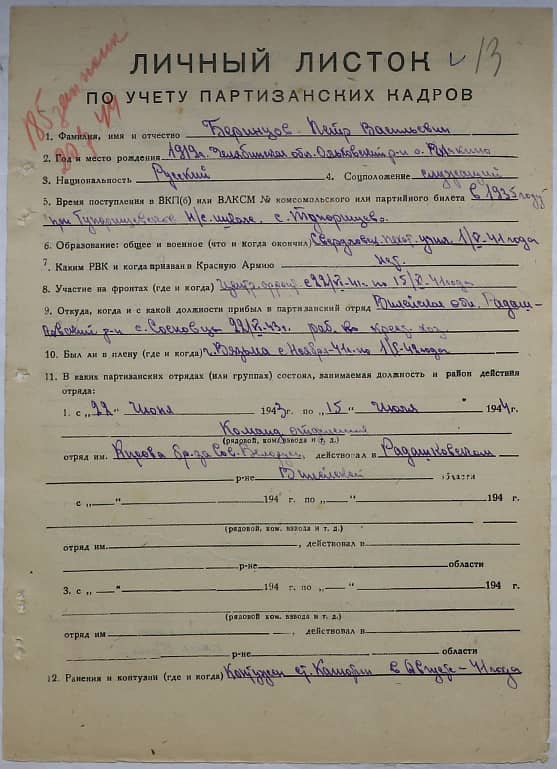 13
ЛИЧНЫЙ ЛИСТОК
ПО УЧЕТУ ПАРТИЗАНСКИХ КАДРОВ
1. Фамилия, имя и отчество Беринцов Петр Васильевич
2. Год и место рождения 1919г. Челябинская обл. р-н с.
3. Национальность Русский 4. Соцположение служащий
5. Время поступления в ВКП(б) или ВЛКСМ № комсомольского или партийного билета в 1935 году
при н/с. школе с.
6. Образование: общее и военное (что и когда окончил) Свердловск. пехот. учил. 41 года
7. Каким РВК и когда призван в Красную Армию
8. Участие на фронтах (где и когда) Центр. фронт с 22/VI-41г. по 15/ 41 года
9. Откуда, когда и с какой должности прибыл в партизанский отряд Вилейская обл. Радаш-
ковский р-н с. 22/VI-43г. раб. в
10. Был ли в плену (где и когда) г. Вязьма с Ноября-41г. по 42 года
11. В каких партизанских отрядах (или группах) состоял, занимаемая должность и район действия
отряда:
1. с „22" Июня 1943г. по „15" Июля 1944г.
Команд. отделения
(рядовой, ком. взвода и т. д.)
отряд им. Кирова бр. за Сов. Белорус., действовал в Радашковском
р-не Вилейской области
с „ " 194 г. по „ " 194 г.
(рядовой, ком. взвода и т. д.)
отряд им. , действовал в
р-не области
3. с „ " 194 г. по „ " 194 г.
(рядовой, ком. взвода и т. д.)
отряд им , действовал в
р-не области
12. Ранения и контузии (где и когда) Контужен ст. в Августе-41 года